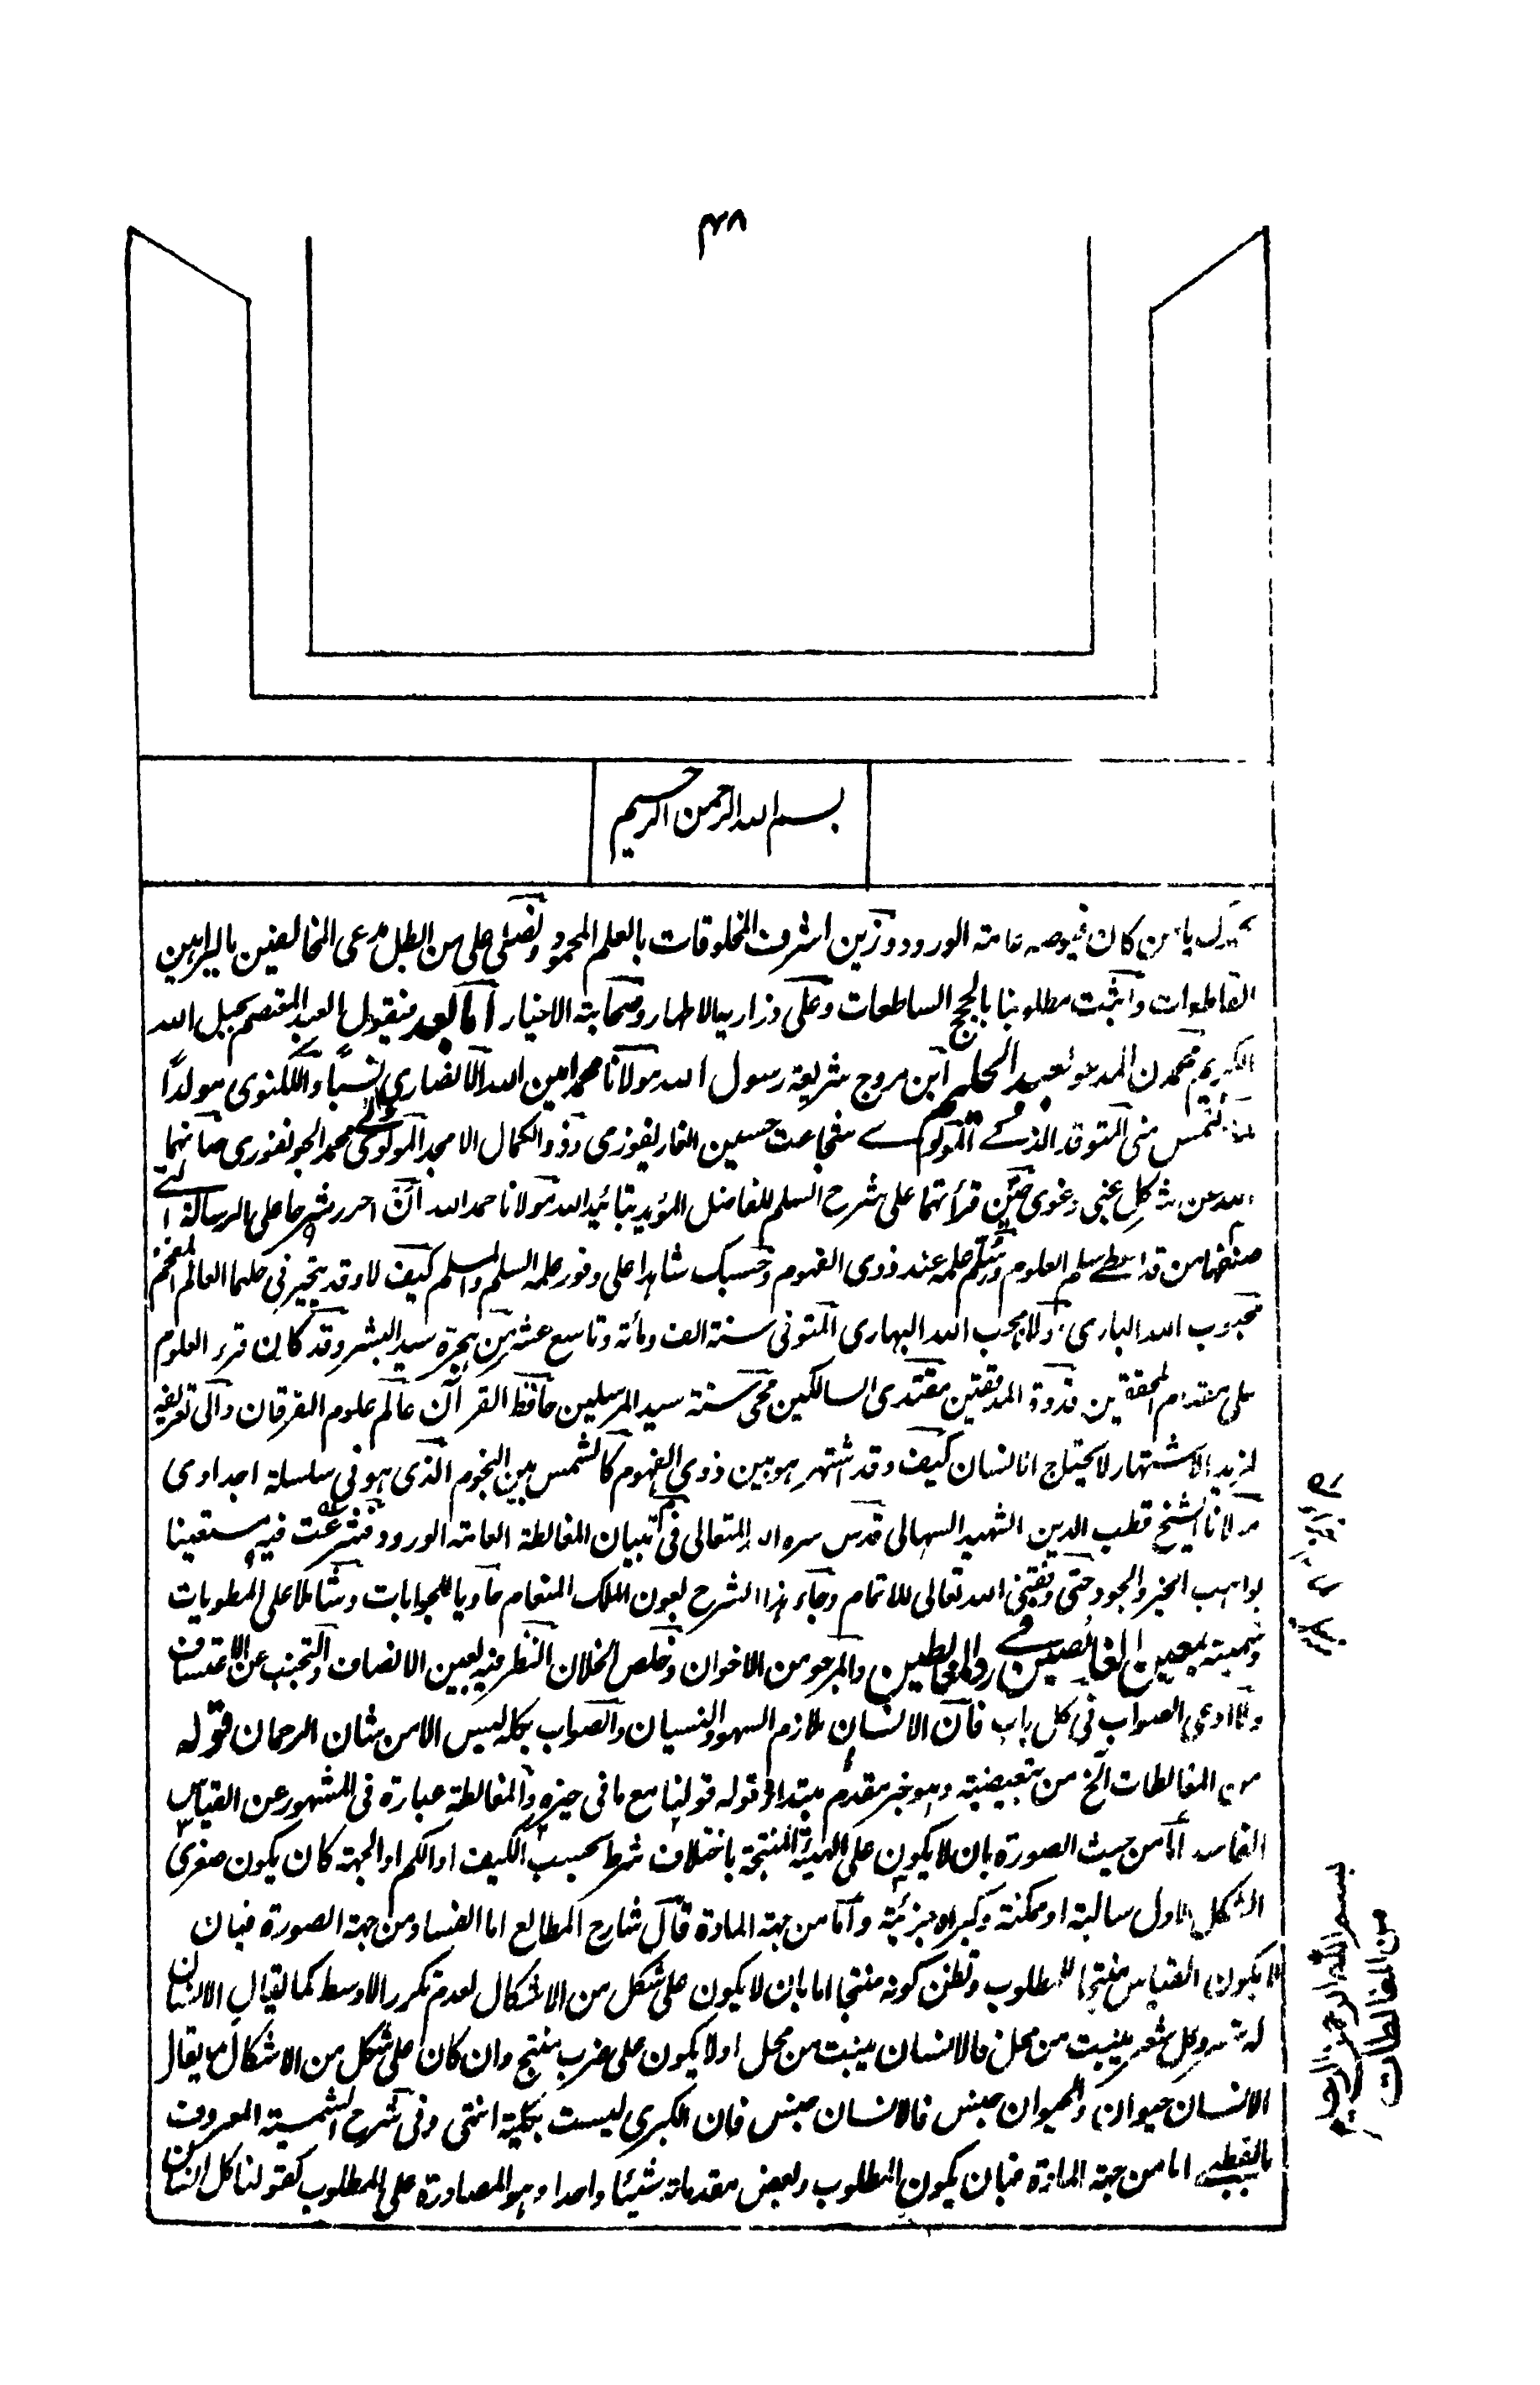 ٤٨
بسم الله الرحمن الرحيم
نحمدك يا من كان فيوضه عامة الورود وزين اشرف المخلوقات بالعلم المحمود ونصلى على من ابطل مدعى المخالفين بالبراهين
القاطعات واثبت مطلوبنا بالحجج الساطعات وعلى ذراريه الاطهار وصحابته الاخيار اما بعد فيقول العبد المعتصم بحبل الله
الكريم محمدن المدعو بعبد الحليم ابن مروج شريعة رسول الله مولانا محمد امين الله الانصاري نسبا واللكنوى مولدا
التمس منى المتوقد الذكے المولوے شجاعت حسين الغازيفورى وذو الكمال الامجد المولوى محمد الجونفورى صانهما
الله عن شر كل غبى وغوى حين قرأتهما على شرح السلم للفاضل المؤيد بتائيد الله مولانا حمد الله ان احرر شرحا على الرسالة التے
صنفها من قد سلم العلوم وسلم حلمه عند ذوى الفهوم وحسبك شاهدا على وفور علمه السلم والمسلم كيف لا وقد يتحير فى حلهما العالم المفخم
محبوب الله البارى مولانا محب الله البهارى المتوفى سنة الف ومأته وتاسع عشر من هجرة سيد البشر وقد كان قرء العلوم
على مقدام المحققين قدوة المدققين مقتدى السالكين محى سنة سيد المرسلين حافظ القرآن عالم علوم الفرقان والى تعريفه
لمزيد الاشتهار لا يحتاج انا لنسان كيف وقد اشتهر هو بين ذوي الفهوم كالشمس بين النجوم الذى هو فى سلسلة اجدادى
مولانا الشيخ قطب الدين الشهيد السهالى قدس سره الله المتعالى فى تبيان المغالطة العامة الورود فشرعت فيه مستعينا
بواهب الخير والجود حتى وفقنى الله تعالى للاتمام وجاء هذا الشرح بعون الملك المنعام حاويا للجوابات وشاملا على المطويات
وسميته بمعين الغائصين فے رد المغالطين والمرجو من الاخوان وخلص الخلان النظر فيه بعين الانصاف والتجنب عن الاعتساف
ولا ادعى الصواب فى كل باب فان الانسان ملازم السهو والنسيان والصواب بكله ليس الا من شان الرحمان قوله
من المغالطات الخ من تبعيضية وهو خبر مقدم مبتداؤه قوله قولنا مع ما فى حيزه والمغالطة عبارة فى المشهور عن القياس
الفاسد اما من حيث الصورة بان لا يكون على الهيئة المنتجة باختلاف شرط بحسب الكيف او الكم او الجهة كان يكون صغرى
الشكل الاول سالبة او ممكنة وكبراه جزئية واما من جهة المادة قال شارح المطالع اما الفساد من جهة الصورة فبان
لا يكون القياس منتجا للمطلوب وتظن كونه منتجا اما بان لا يكون على شكل من الاشكال لعدم تكرر الاوسط كما يقال الانسان
له شعر وكل شعر ينبت من محل فالانسان ينبت من محل او لا يكون على ضرب منتج وان كان على شكل من الاشكال كما يقال
الانسان حيوان والحيوان جنس فالانسان جنس فان الكبرى ليست بكلية انتهى وفى شرح الشمسية المعروف
بالقطبے اما من جهة المادة فبان يكون المطلوب وبعض مقدماته شيئا واحدا وهو المصادرة على المطلوب كقولنا كل انسان
بسم الله الرحمن الرحيم
من المغالطات